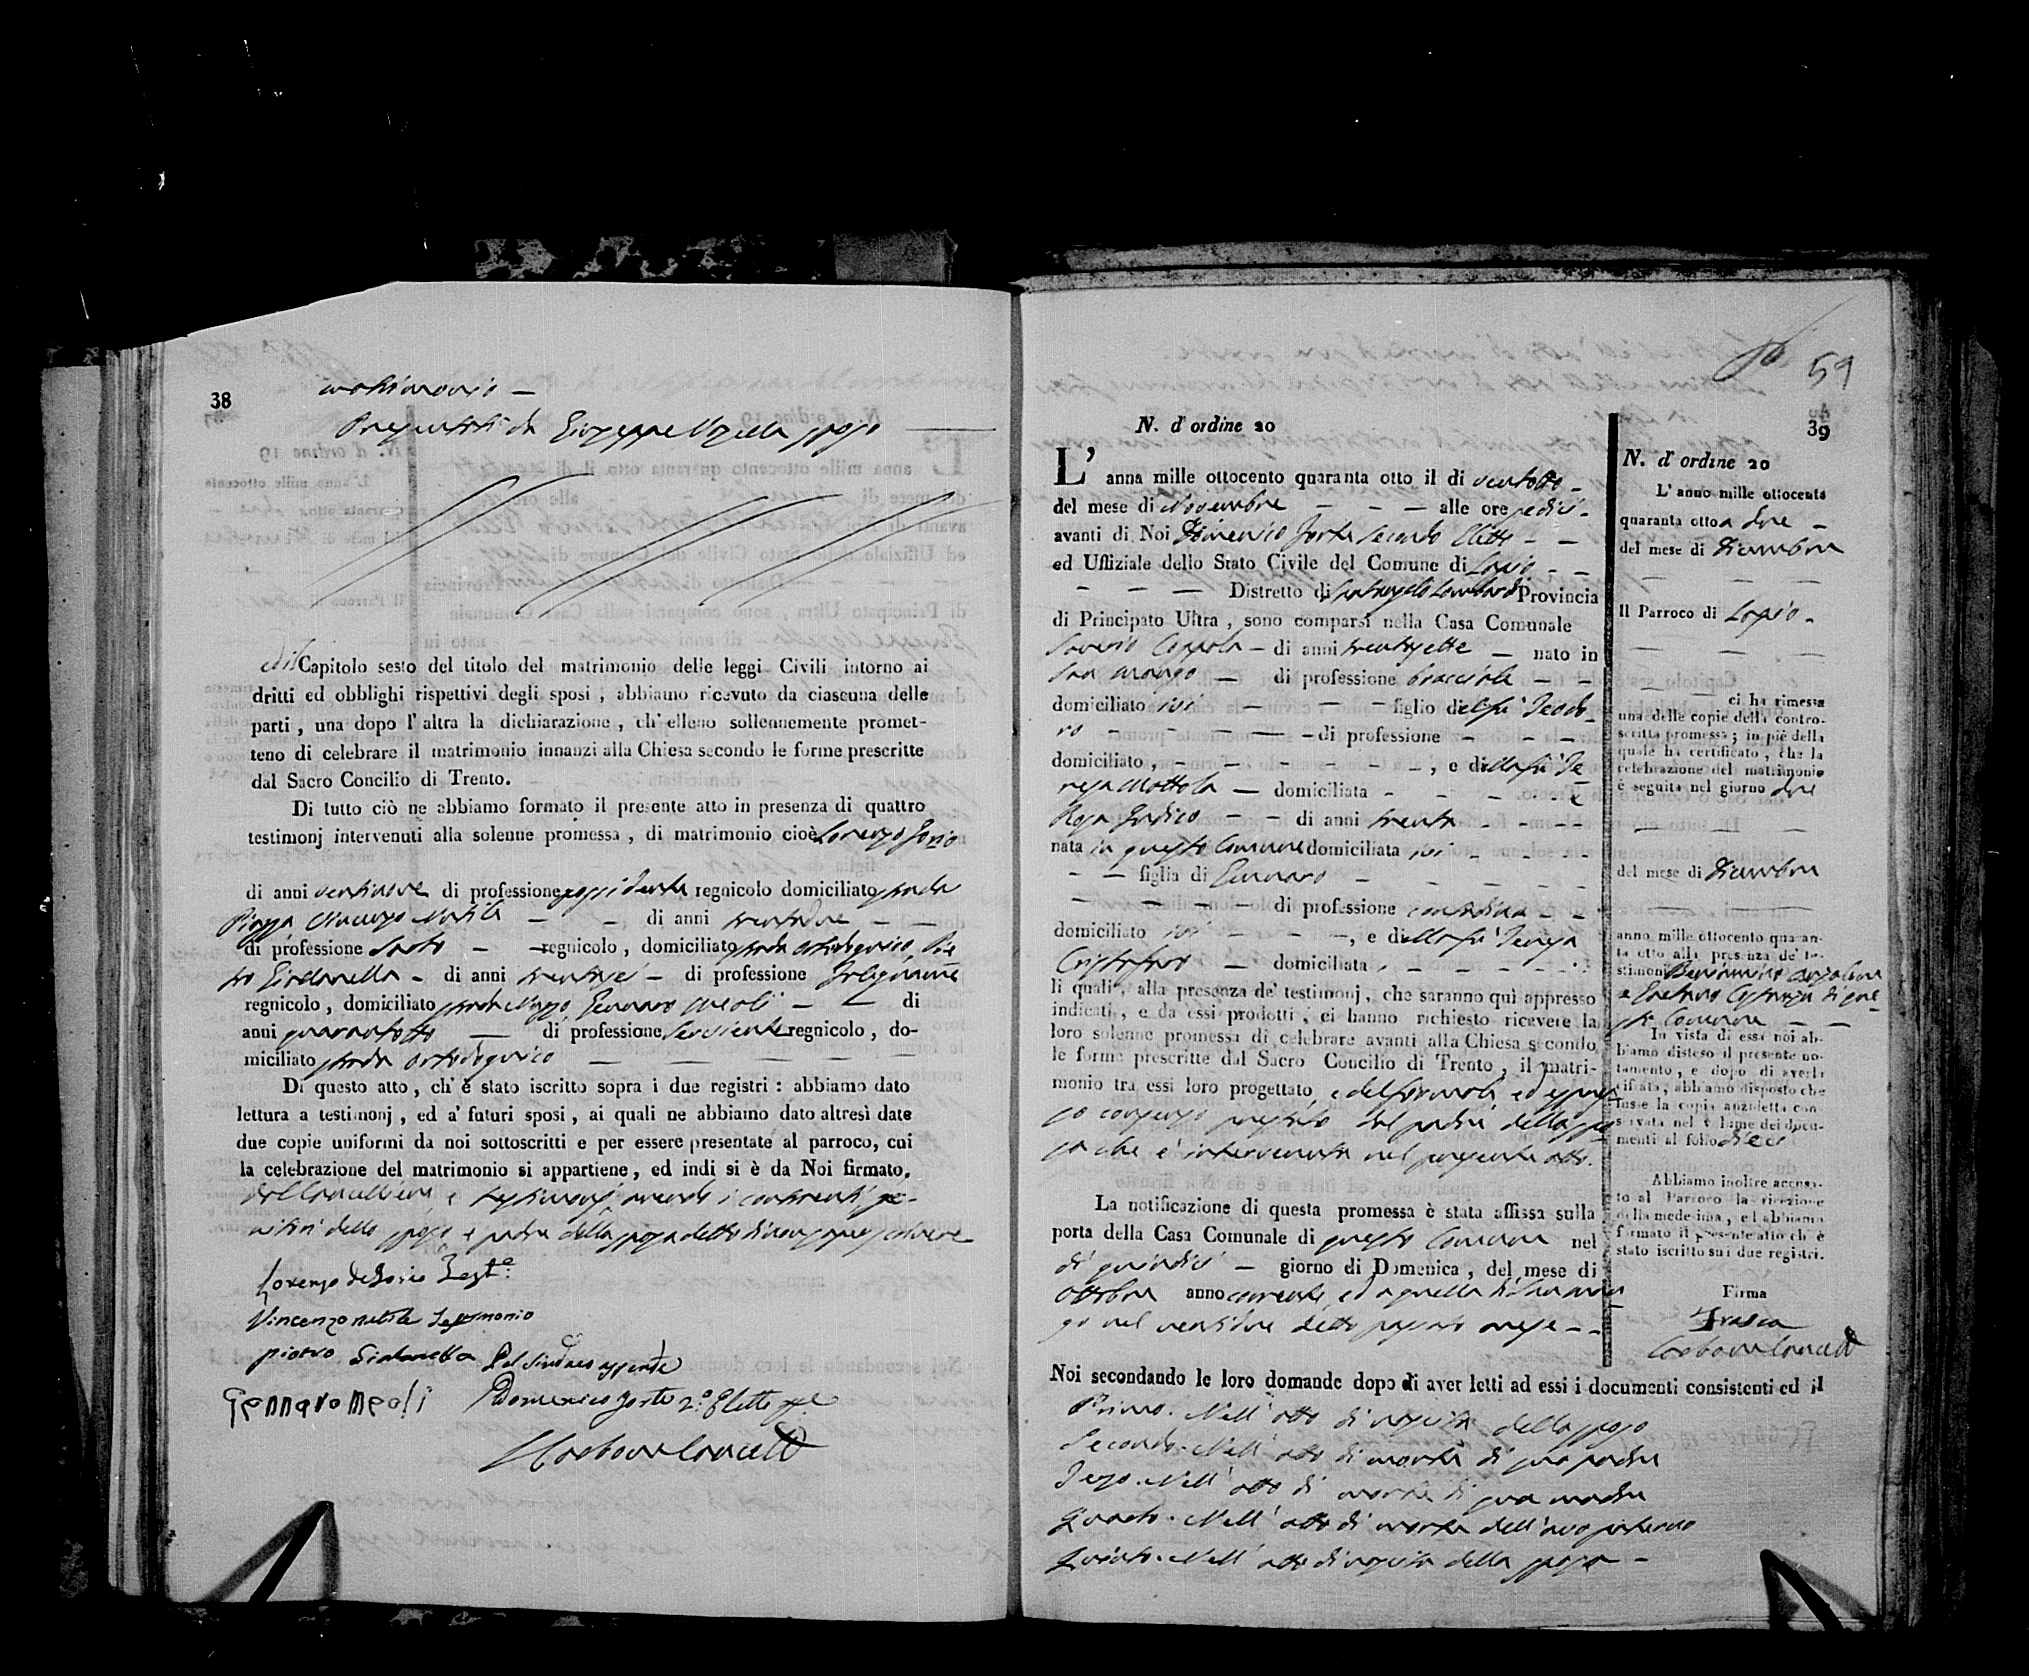 38
matrimonio —
Presentati da Giuseppe sposo
del Capitolo sesto del titolo del matrimonio delle leggi Civili intorno ai
dritti ed obblighi rispettivi degli sposi , abbiamo ricevuto da ciascuna delle
parti , una dopo l' altra la dichiarazione , ch' elleno sollennemente promet-
teno di celebrare il matrimonio innanzi alla Chiesa secondo le forme prescritte
dal Sacro Concilio di Trento.
Di tutto ciò ne abbiamo formato il presente atto in presenza di quattro
testimonj intervenuti alla solenne promessa , di matrimonio cioè Lorenzo Iorio
di anni ventinove di professione possidente regnicolo domiciliato strada
Piazza Vincenzo Natile — — di anni trentadue — —
di professione Sarto — — regnicolo , domiciliato strada Pie
tro Giordanella — di anni trentasei — di professione Falegname
regnicolo , domiciliato strada Gennaro Meoli — — di
anni quarantotto — di professione Serviente regnicolo , do-
miciliato strada — — — —
Di questo atto , ch' è stato iscritto sopra i due registri : abbiamo dato
lettura a testimonj , ed a' futuri sposi , ai quali ne abbiamo dato altresì date
due copie uniformi da noi sottoscritti e per essere presentate al parroco, cui
la celebrazione del matrimonio si appartiene , ed indi si è da Noi firmato,
dal Cancelliere, e testimonj avendo i contraenti ge-
nitori dello sposo e padre della sposa detto di non sapere scrivere
Lorenzo de Iorio Test.e
Vincenzo natile Testimonio
pietro Giordanella Pel Sindaco assente
Gennaro Meoli Domenico Forte 2.o Eletto
Carbone Cancell
59
39
N. d' ordine 20
L' anna mille ottocento quaranta otto il di ventotto —
del mese di Novembre — — — alle ore sedici —
avanti di Noi Domenico Forte Secondo Eletto — —
ed Uffiziale dello Stato Civile del Comune di Lapio — —
— — — Distretto di Santangelo Lombardi Provincia
di Principato Ultra , sono comparsi nella Casa Comunale
Saverio Coppola — di anni trentasette — nato in
San Mango — di professione bracciale — —
domiciliato ivi — — — figlio del fu Teodo-
ro — — — — — di professione — — —
domiciliato , — — — — — — — , e della fu Te
resa Mottola — domiciliata — — — — e
Rosa Iodice — — di anni trenta — — — —
nata in questo Comune domiciliata ivi — — — —
— — figlia di Gennaro — — — — — —
— — — — di professione contadina — —
domiciliato ivi — — — —, e della fu Teresa
Cristofaro — domiciliata , — — — — — :
li quali , alla presenza de' testimonj , che saranno qui appresso
indicati , e da essi prodotti , ci hanno richiesto ricevere la
loro solenne promessa di celebrare avanti alla Chiesa secondo
le forme prescritte dal Sacro Concilio di Trento , il matri-
monio tra essi loro progettato, e del formola ed espres-
so consenso prestato dal padre della spo
sa che è intervenuto nel presente atto.
La notificazione di questa promessa è stata affissa sulla
porta della Casa Comunale di questo Comune nel
di quindici — giorno di Domenica , del mese di
Ottobre anno corrente, ed a quella di San man
go nel ventidue detto passato mese — —
Noi secondando le loro domande dopo di aver letti ad essi i documenti consistenti ed il
Primo. Nell' atto di nascita dello sposo
Secondo. Nell' atto di morte di suo padre
Terzo. Nell' atto di morte di sua madre
Quarto. Nell' atto di morte dell' avo paterno
Quinto. Nell' atto di nascita della sposa —
N. d' ordine 20
L' anno mille ottocento
quaranta otto a due —
del mese di Dicembre
Il Parroco di Lapio —
ci ha rimessa
una delle copie della contro-
scritta promessa ; in piè della
quale ha certificato , che la
celebrazione del matrimonio
è seguita nel giorno due
del mese di Dicembre
anno mille ottocento quaran-
ta otto alla presenza de' te-
stimonj Beniamino
e Gaetano di que
sto Comune — —
In vista di essa noi ab-
biamo disteso il presente no-
tamento , e dopo di averla
cifrata, abbiamo disposto che
fusse la copia anzidetta con
servata nel volume dei docu-
menti al folio dieci
Abbiamo inoltre accusa-
to al Parroco la ricezione
della medesima, ed abbiamo
firmato il presente atto ch' è
stato iscritto sui due registri.
Firma
Frasca
Carbone Cancell